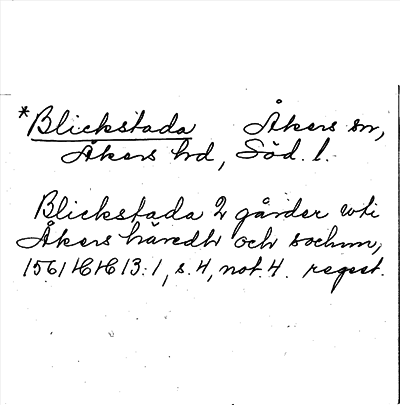 *Blickstada Åkers sn,
Åkers hd, Söd. l.
Blickstada 2 gårder uti
Åkers häredh och sochnn,
1561 HCHC 13:1, s. 4, not. 4. regest.